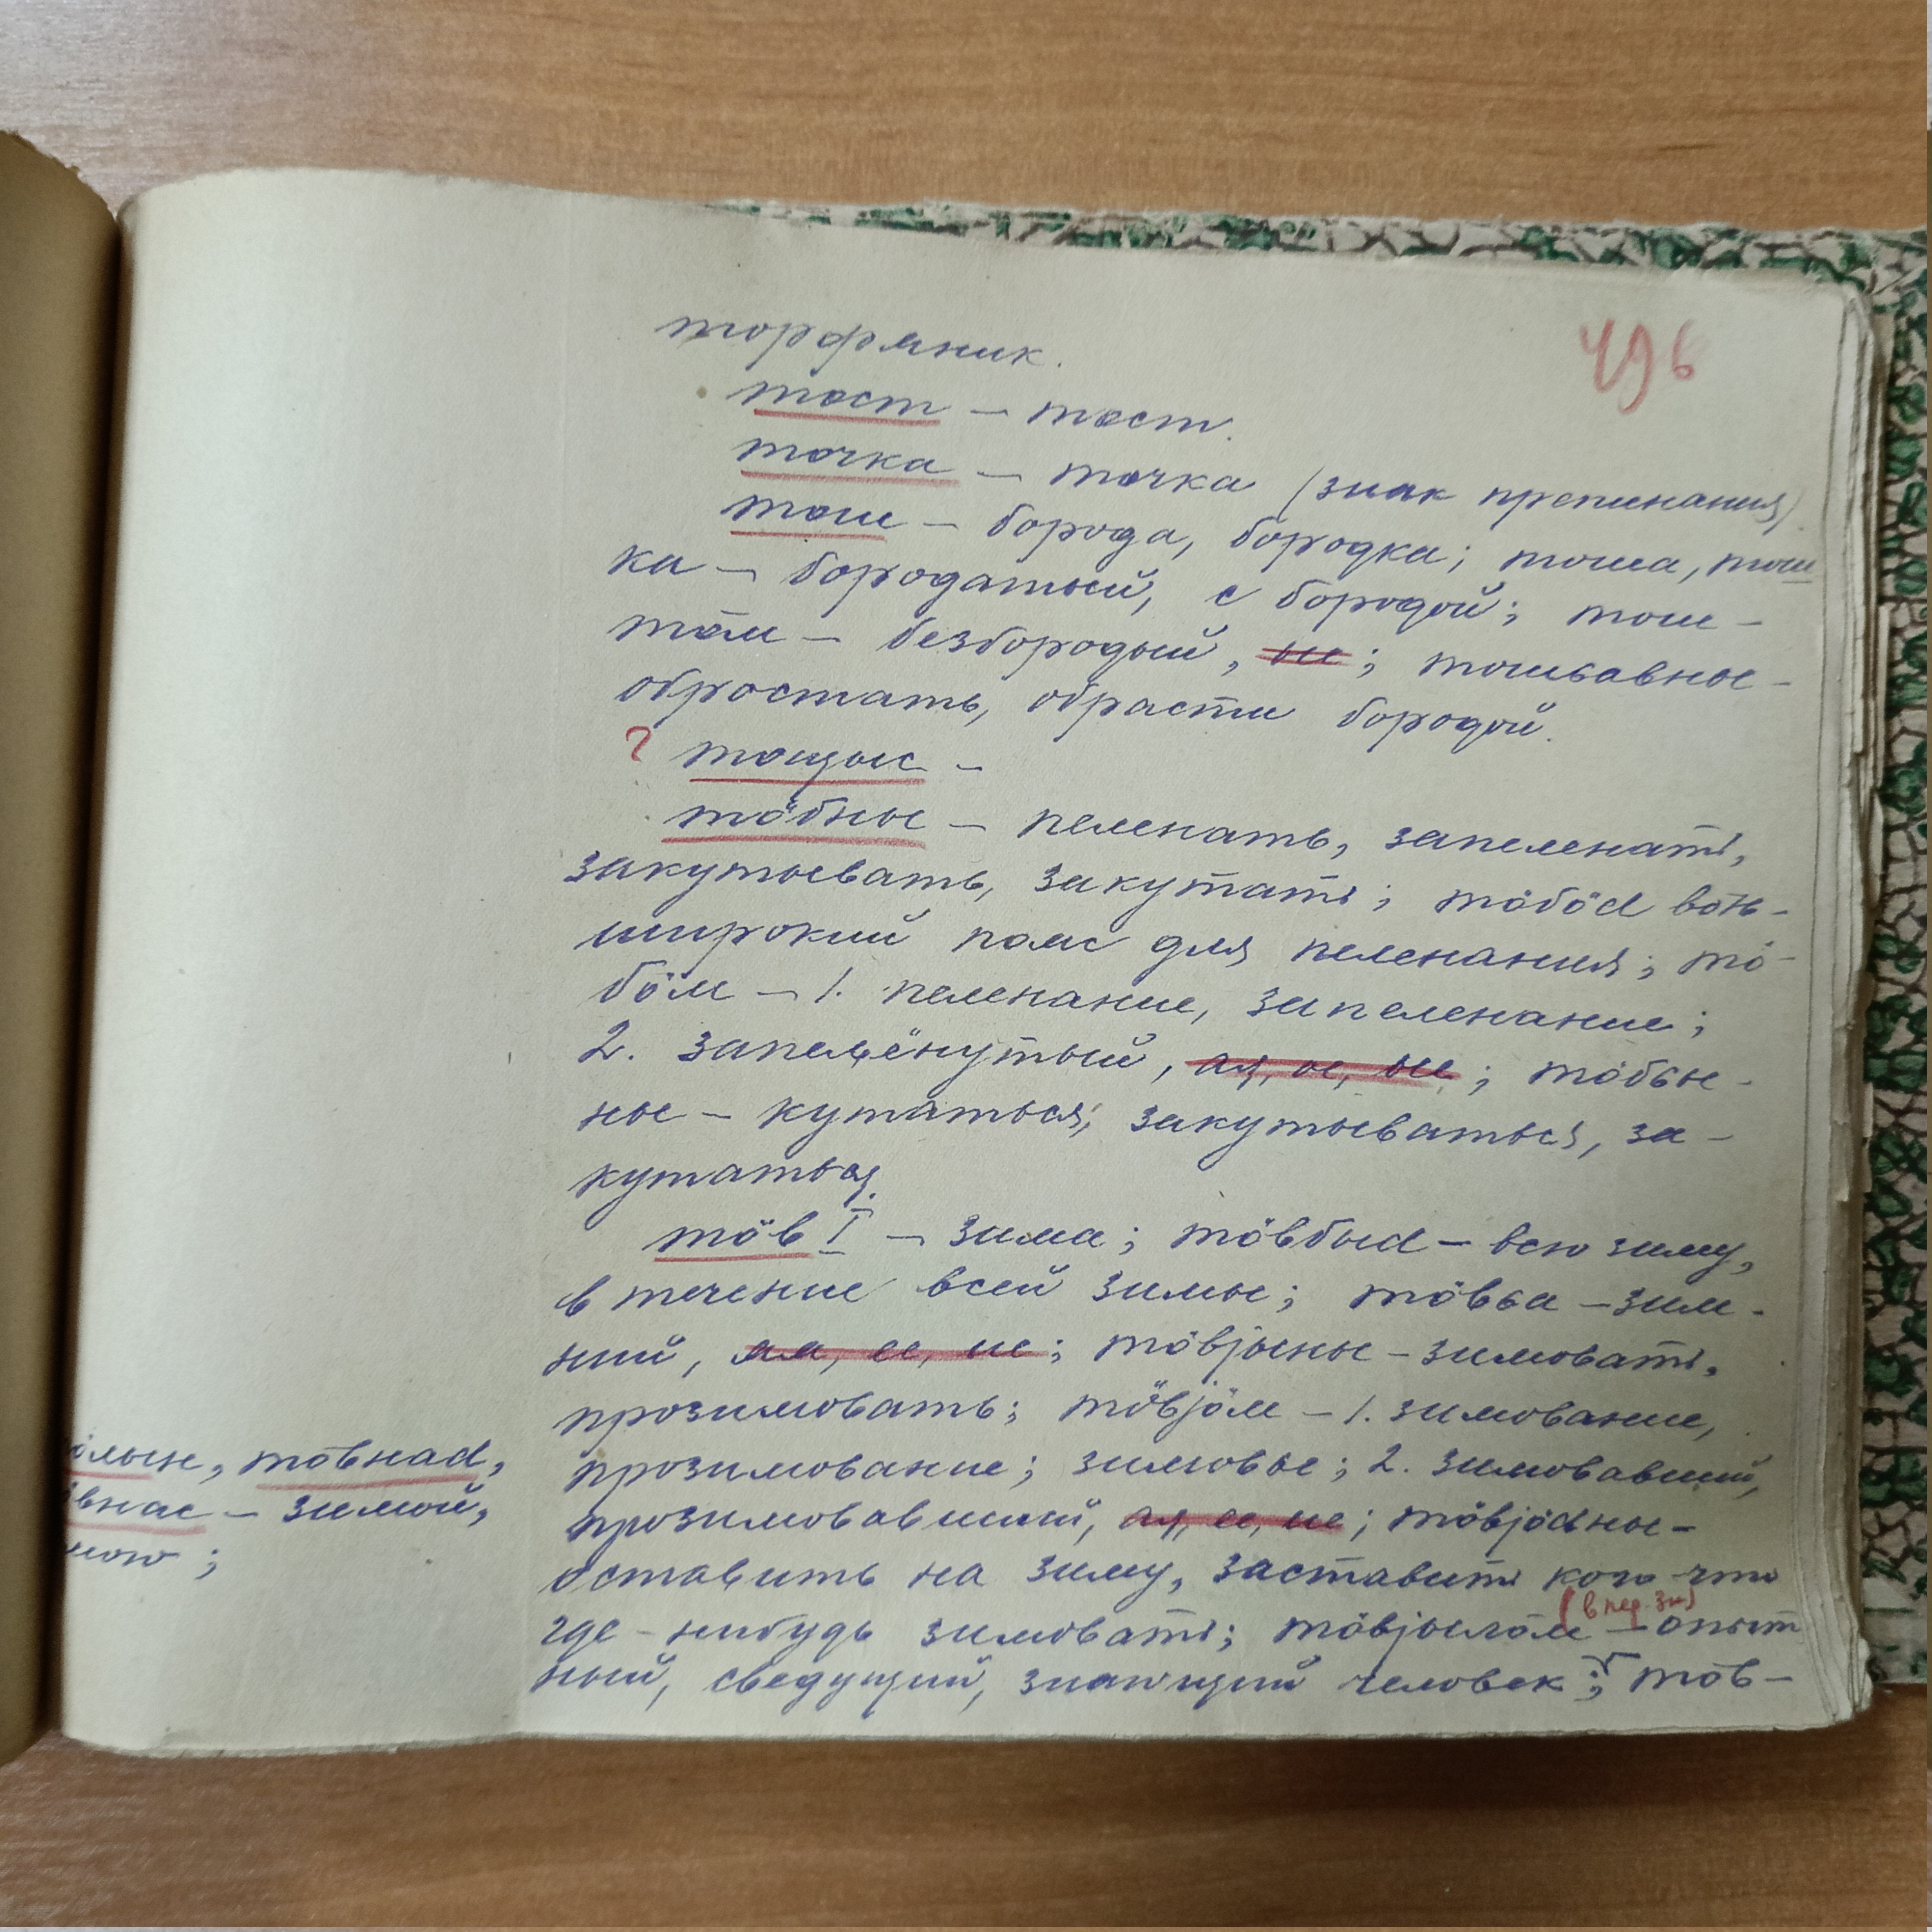 496
торфяник.
тост – тост.
точка – точка (знак препинания).
тош – борода, бородка; тоша, тош
ка – бородатый, с бородой; тош –
тӧм – безбородый, ые; тошсавны –
обростать, обрасти бородой.
? тощыс –
тӧбны – пеленать, запеленать,
закутывать, закутать; тӧбӧԁ вонь –
широкий пояс для пеленания; тӧ-
бӧм – 1. пеленание, запеленание;
2. запелёнутый, ая, ое, ые; тӧбсы-
ны – кутаться, закутываться, за –
кутаться.
тӧв I – зима; тӧвбыԁ – всю зиму,
в течение всей зимы; тӧвса – зим-
ний, яя, ее, ие; тӧвјыны – зимовать,
прозимовать; тӧвјӧм – 1. зимование,
прозимование; зимовье; 2. зимовавший,
прозимовавший, ая, ее, ие; тӧвјӧԁны –
оставить на зиму, заставить кого-что
(в пер. зн)
где-нибудь зимовать; тӧвјылӧм – опыт
ный, сведущий, знающий человек; тӧв-
ӧлын, тӧвнаԁ,
ӧвнас – зимой,
мою;